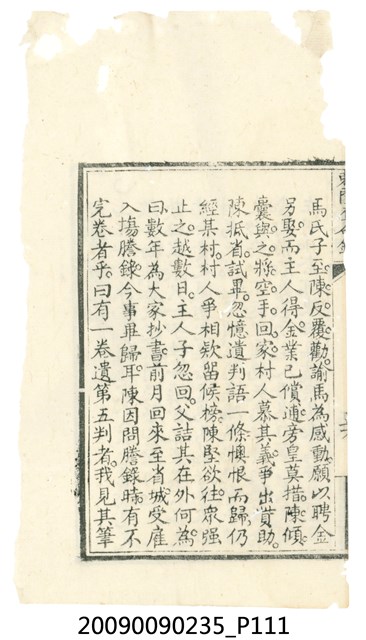 馬氏子至陳反覆勸諭馬為感動願以聘金
另娶而主人得金業已償逋旁皇莫措陳傾
囊與之將空手回家村人慕其義爭出貲助
陳抵省試畢忽憶遺判語一條懊恨而歸仍
經某村村人爭相欵留候榜陳堅欲往眾强
止之越數日主人子忽回父詰其在外何為
曰數年為大家抄書前月回來至省城受雇
入塲謄錄今事畢歸耳陳因問謄錄時有不
完卷者乎曰有一卷遺第五判者我見其筆
20090090235_P111